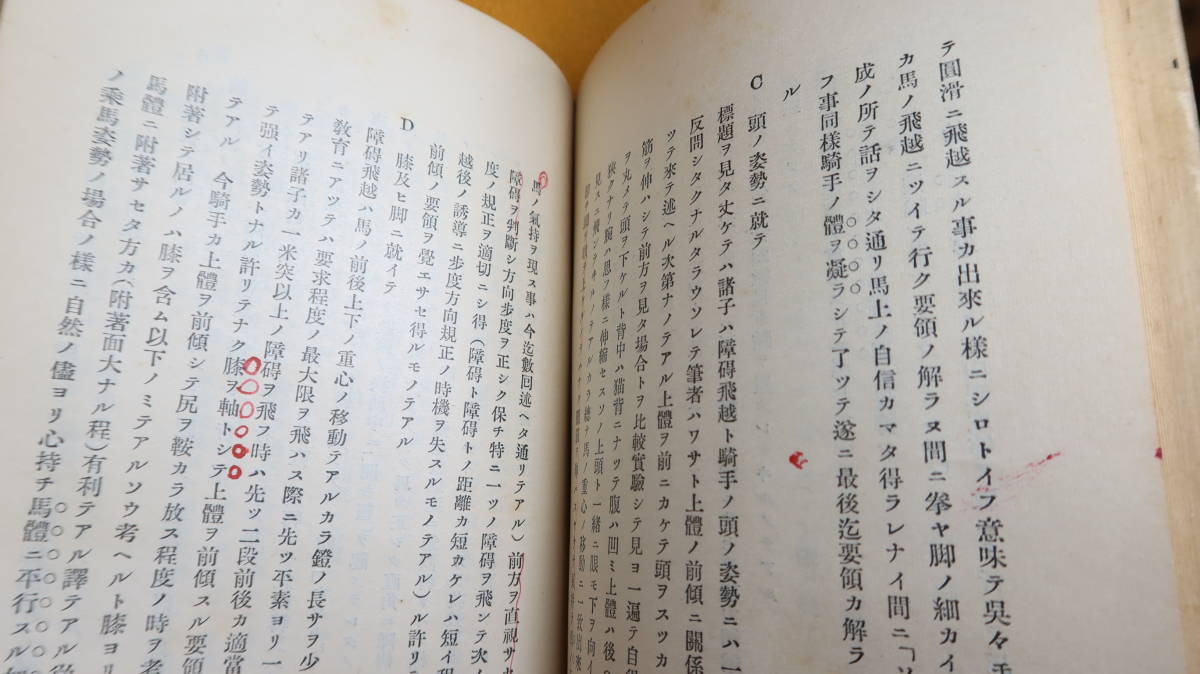 テ圓滑ニ飛越スル事カ出來ル様ニシロトイフ意味テ吳々モ
カ馬ノ飛越ニツイテ行ク要領ノ解ラヌ間ニ拳ヤ脚ノ細カイ
成ノ所テ話ヲシタ通リ馬上ノ自信カマタ得ラレナイ間ニ「ソ
フ事同様騎手ノ體ヲ凝ラシテ了ツテ遂ニ最後迄要領カ解ラ
ル
C 頭ノ姿勢ニ就テ
標題ヲ見タ丈ケテハ諸子ハ障碍飛越ト騎手ノ頭ノ姿勢ニハ一
反問シタクナルタラウソレテ筆者ハワサト上體ノ前傾ニ關係
ツテ來テ述ヘル次第ナノテアル上體ヲ前ニカケテ頭ヲスツカ
筋ヲ伸ハシテ前方ヲ見タ場合トヲ比較實驗シテ見ヨ一遍テ自得
ヲ丸メテ頭ヲ下ケルト背中ハ猫背ニナツテ腹ハ凹ミ上體ハ後
狹クナリ腕ハ思フ様ニ伸縮セスソノ上頭ト一緒ニ眼モ下ヲ向イ
馬ノ氣持ヲ現ス事ハ今迄數回述ヘタ通リテアル)前方ヲ直視サセ
障碍ヲ判斷シ方向步度ヲ正シク保チ特ニ一ツノ障碍ヲ飛ンテ次ノ
度ノ規正ヲ適切ニシ得(障碍ト障碍トノ距離カ短カケレハ短イ程
越後ノ誘導ニ步度方向規正ノ時機ヲ失スルモノテアル)ル許リテ
前傾ノ要領ヲ覺エサセ得ルモノテアル
D 膝及ヒ脚ニ就イテ
障碍飛越ハ馬ノ前後上下ノ重心ノ移動テアルカラ鐙ノ長サヲ少
敎育ニアツテハ要求程度ノ最大限ヲ飛ハス際ニ先ツ平素ヨリ一
テアリ諸子カ一米突以上ノ障碍ヲ飛フ時ハ先ツ二段前後カ適當
テ强イ姿勢トナル許リテナク膝ヲ軸トシテ上體ヲ前傾スル要領
テアル 今騎手カ上體ヲ前傾シテ尻ヲ鞍カラ放ス程度ノ時ヲ考
附著シテ居ルノハ膝ヲ含ム以下ノミテアルソウ考ヘルト膝ヨリ
馬體ニ附著サセタ方カ(附著面大ナル程)有利テアル譯テアル
ノ乘馬姿勢ノ場合ノ樣ニ自然ノ儘ヨリ心持チ馬體ニ平行スル